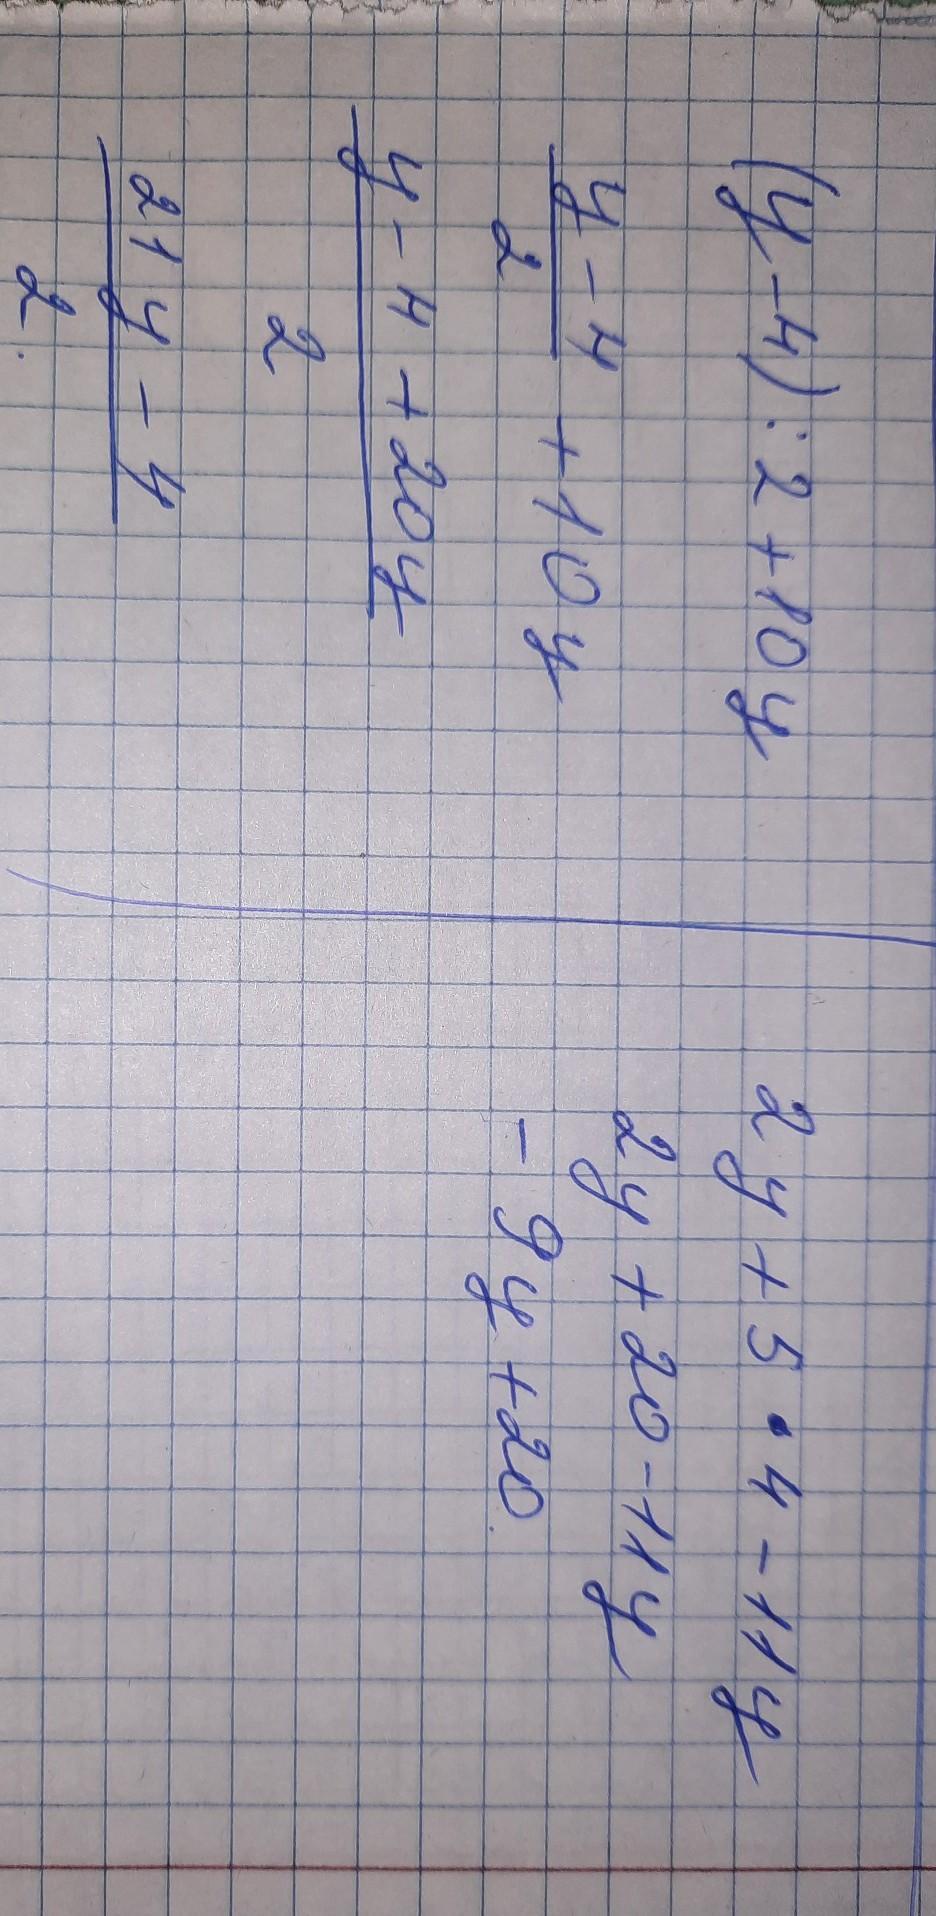 (y-4):2+10y
y-4
2
+10y
y-4+20y
2
21y-4
2.
2y+5·4-11y
2y+20-11y
-9y+20.